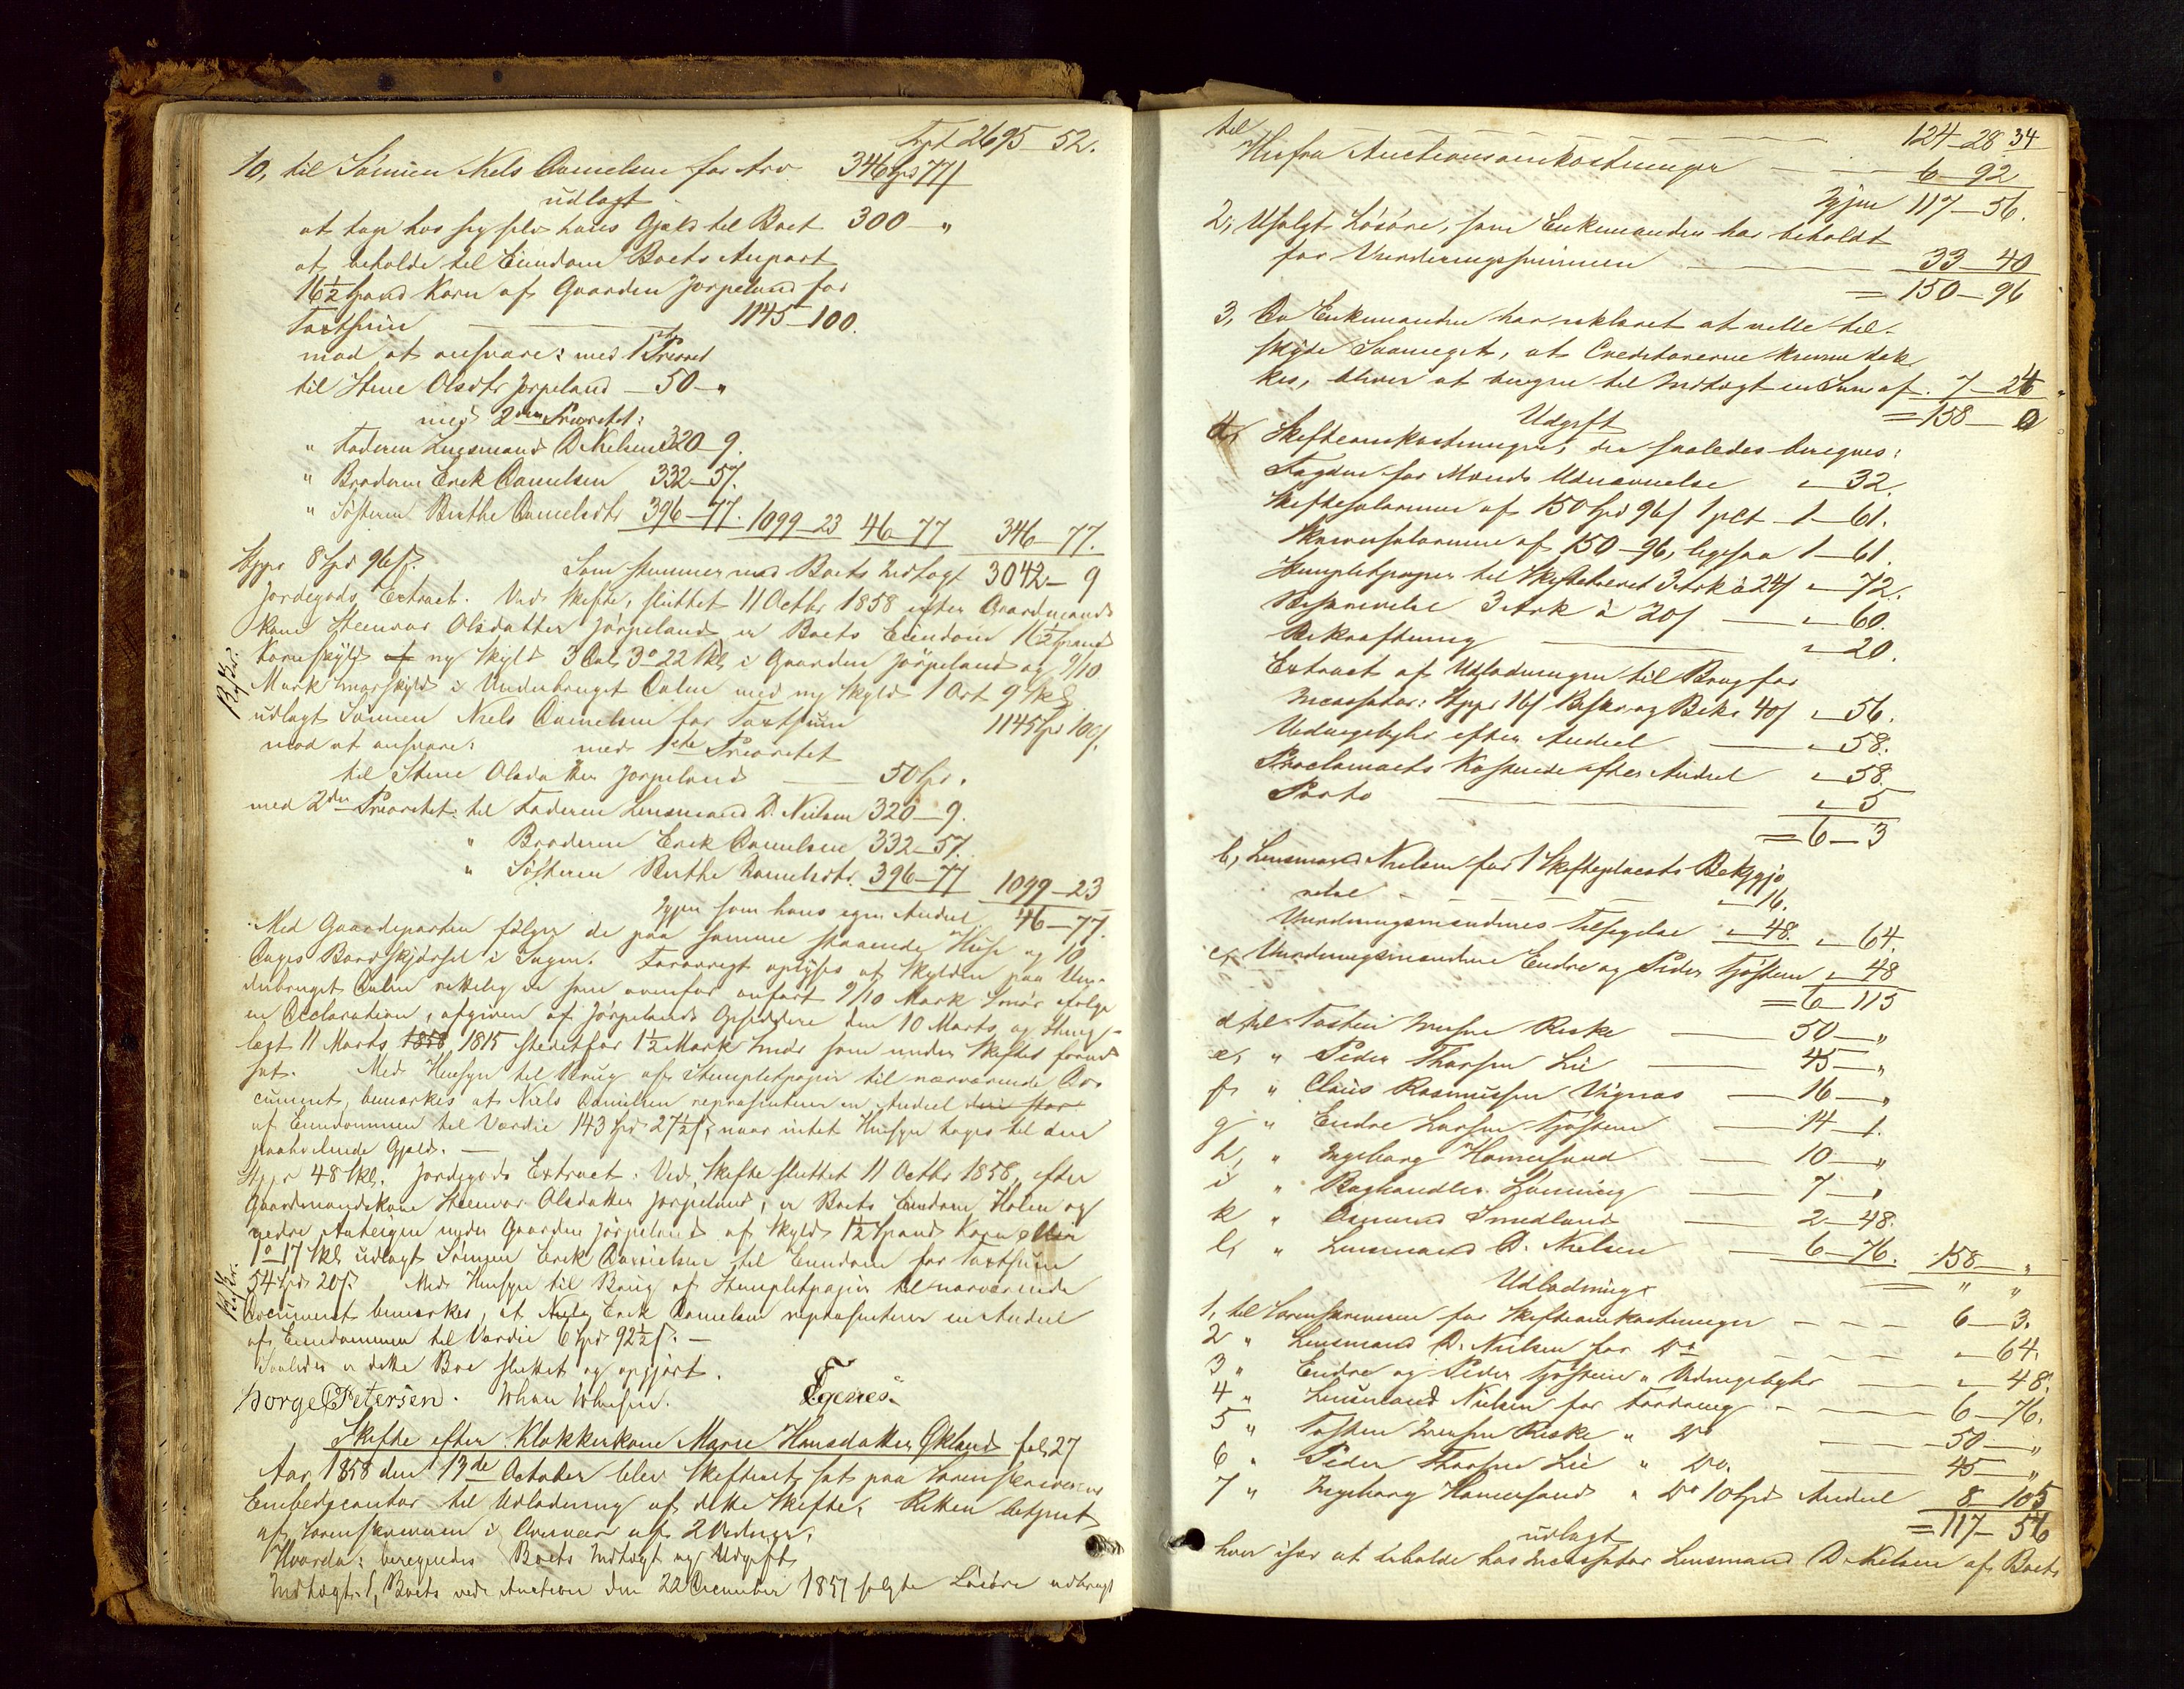 Tpt 2695–52.
10, til Sønnen Niels Danielsen for Arv 346 Spd 77 s
udlagt
at tage hos sig selv hans Gjæld til Boet 300 – "
at beholde til Eiendom Boets Anpart
16½ Spand Korn af Gaarden Jørpeland for
Taxtsum — 1145–100.
mod at ansvare: med 1ste Priorit
til Stene Olsdtr Jørpeland – 50 – "
med 2den Prioritet:
" Faderen Lensmand D. Nielsen 320–9.
" Broderen Erik Danielsen 332–57.
" Søsteren Berthe Danielsdtr 396–77. 1099–23 46–77 346–77.
Stppr 8 Spd 96 s. Som stemmer med Boets Indtægt 3042–9
Jordegods Extract. Ved Skifte, sluttet 11 Octbr 1858 efter Gaardmands
kone Steenvor Olsdatter Jørpeland, er Boets Eiendom 16½ Spand
Korn skyld af ny Skyld 3 Dal. 3 o 22 Skl i Gaarden Jørpeland og 9/10
Mark Smørskyld i Underbruget Dalen med ny Skyld 1 Ort 9 Skl
udlagt Sønnen Niels Danielsen for Taxtsum 1145 Spd 100 s.
mod at ansvare: med 1ste Prioritet
til Stene Olsdatter Jørpeland — 50 Spd.
med 2den Prioritet til Faderen Lensmand D. Nielsen 320–9.
" Broderen Erik Danielsen 332–57.
" Søsteren Berthe Danielsdtr. 396–77 1099–23
Igjen som hans egen Andeel 46–77.
Med Gaardeparten følger de paa samme staaende Huse og 10
Dages Bordskjørsel i Sagen. Forøvrigt oplyses at Skylden paa Un-
derbruget Dalen rettelig er som ovenfor anført 9/10 Mark Smør ifølge
en Declaration, afgiven af Jørpelands Opsiddere den 10 Marts og thing-
læst 11 Marts 1858 1815 istedetfor 1½ Mark Smør som under Skiftet forud
sat. Med Hensyn til Brug af Stempletpapir til nærværende Do-
cument, bemærkes at Niels Danielsen repræsenterer en Andeel
af Eiendommen til Værdie 143 Spd 27½ s, naar intet Hensyn tages til den
paahvilende Gjæld. —
Stppr 48 Skl. Jordegods Extract: Ved Skifte sluttet 11 Octbr 1858, efter
Gaardmandskone Steenvor Olsdatter Jørpeland, er Boets Eiendom Holen og
nedre under Gaarden Jørpeland af Skyld 1½ Spand Korn
1 o 17 Skl udlagt Sønnen Erik Danielsen til Eiendom for Taxtsum
54 Spd 20 s. Med Hensyn til Brug af Stempletpapir til nærværende
Document bemærkes, at Niels Erik Danielsen repræsenterer en Andeel
af Eiendommen til Værdie 6 Spd 92½ s. —
Saaledes er dette Boe sluttet og opgjort.
Borge Petersen. Johan Johnsen. Egenes.
Skifte efter Klokkerkone Marie Hansdatter Økland fol 27
Aar 1858 den 13de October blev Skifteret sat paa Sorenskriverens
Embedscontor til Udlodning af dette Skifte, Retten betjent
af Sorenskriveren i Overvær af 2 Vidner.
Hvorda: beregnedes Boets Indtægt og Udgift
Indtægt. 1, Boets ved Auction den 22 December 1857 solgte Løsøre udbragt
til — 124–28 34
Herfra Auctionsomkostninger — 6–92
Igjen 117–56.
2, Usolgt Løsøre, som Enkemanden har beholdt
for Vurderingssummen — 33–40
= 150–96
3, Da Enkemanden har erklæret at ville til-
skyde Saameget, at Creditorerne kunne dæk
kes, bliver at beregne til Indtægt en Sum af 7–24 "
= 158–0
Udgift
a, Skifteomkostninger, der saaledes beregnes:
Dagene for Mænds Udnævnelse " 32.
Skiftesalarium af 150 Spd 96 s 1 pCt – 1–61.
Skriversalarium af 150–96, ligesaa 1–61.
Stempletpapir til Skiftebrevet 3 Ark à 24 s " 72.
Beskrivelse 3 Ark à 20 s — " 60.
Bekræftning — " 20.
Extract af Udlodningen til Brug for
Incassator: Stppr 16 s Beskr og Bekr 40 s " 56.
Vidnegebyhr efter Andeel — " 58.
Proclamaets Kostende efter Andeel " 58.
Porto — " 5
= 6–3
b, Lensmand Nielsen for 1 Skifteplacats Bekjgjø
relse — " 16.
Vurderingsmændenes Tilsigelse " 48. " 64.
c, Vurderingsmændene Endre og Peder Tjøstem " 48
= 6–115
d, til Tosten Iversen Riske — 50 – "
e, " Peder Thorsen Lie — 45 – "
f, " Claus Rasmussen Vignæs — 16 – "
g " Endre Larsen Tjøstem — 14–1.
h, " Ingeborg Hamersand — 10 – "
i " Baghandler Lønning — 7 – "
k " Osmund Smedland — 2–48.
l, " Lensmand D. Nielsen — 6–76. 158 – "
Udlodning. = " "
1, til Sorenskriveren for Skifteomkostninger — 6–3.
2 " Lensmand D. Nielsen for Do — " 64.
3 " Endre og Peder Tjøstem " Vidnegebyhr — " 48.
4 " Lensmand Nielsen for Fordring — 6–76.
5 " Tosten Iversen Riske " Do — 50 – "
6 " Peder Thorsen Lie " Do. — 45 – "
7 " Ingeborg Hamersand " Do 10 Spd Andeel 8–105
= 117–56
udlagt
hver især at beholde hos Incassator Lensmand D. Nielsen af Boets